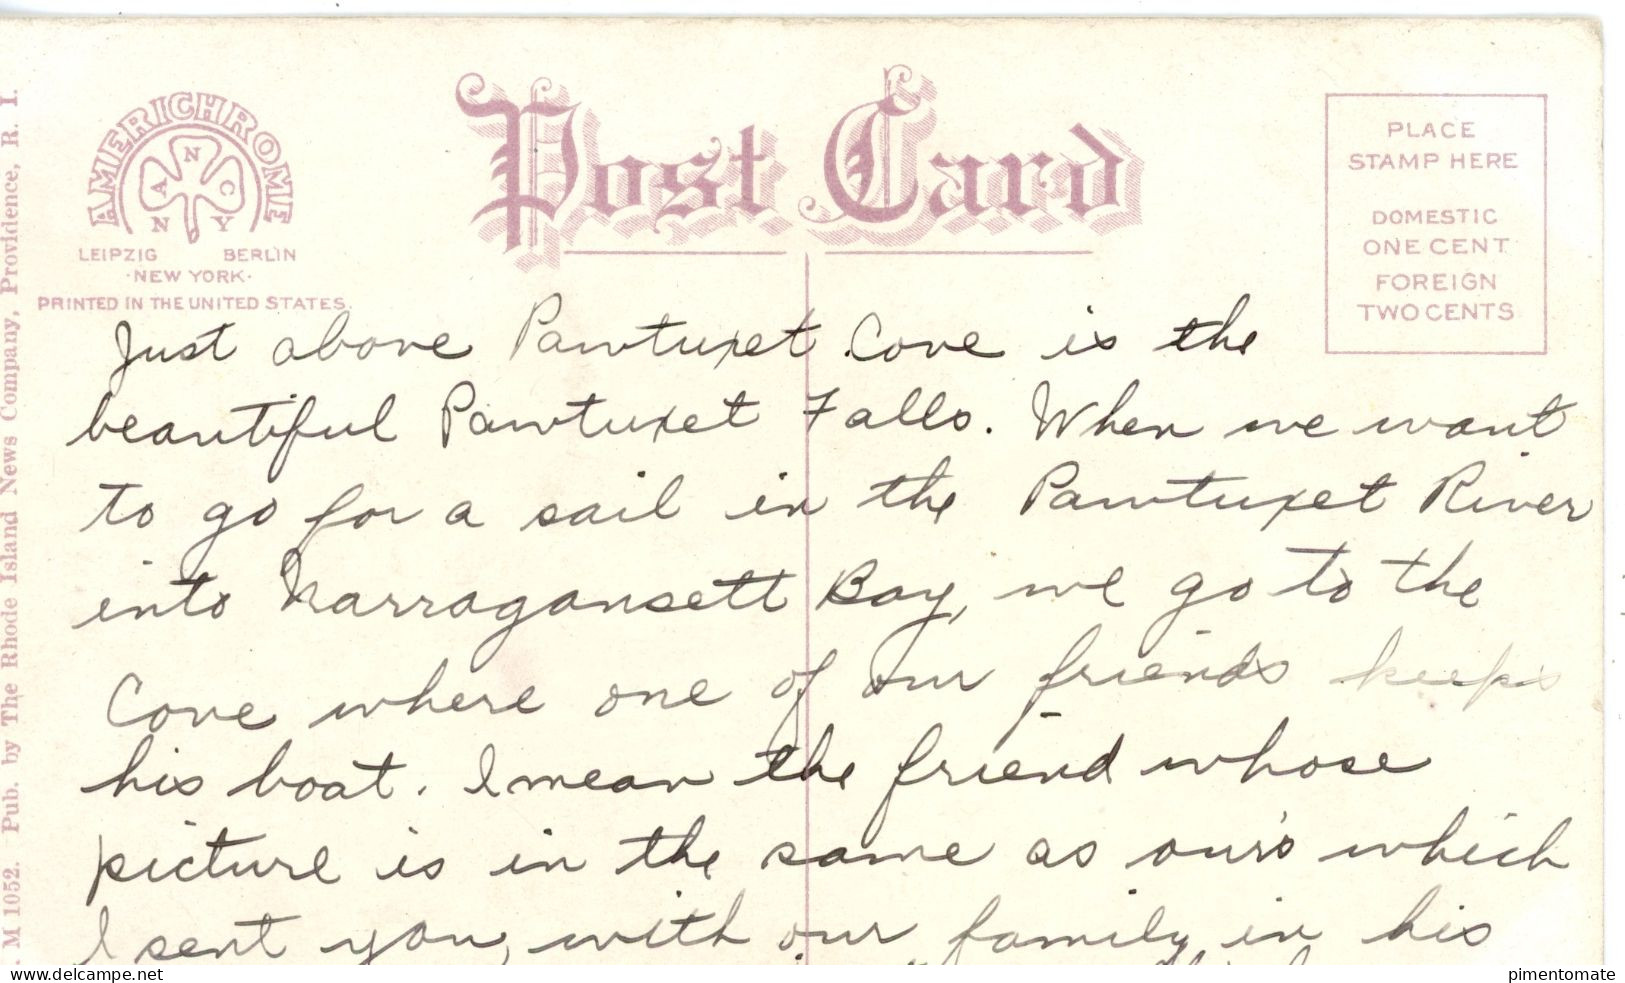 AMERICHROME
N
A C
N Y
LEIPZIG BERLIN
·NEW YORK·
PRINTED IN THE UNITED STATES.
Post Card
PLACE
STAMP HERE
DOMESTIC
ONE CENT
FOREIGN
TWO CENTS
M 1052. Pub. by The Rhode Island News Company, Providence, R. I.
Just above Pawtuxet Cove is the
beautiful Pawtuxet Falls. When we want
to go for a sail in the Pawtuxet River
into Narragansett Bay, we go to the
Cove where one of our friends keeps
his boat. I mean the friend whose
picture is in the same as our's which
I sent you, with our family in his
delcampe.net
pimentomate